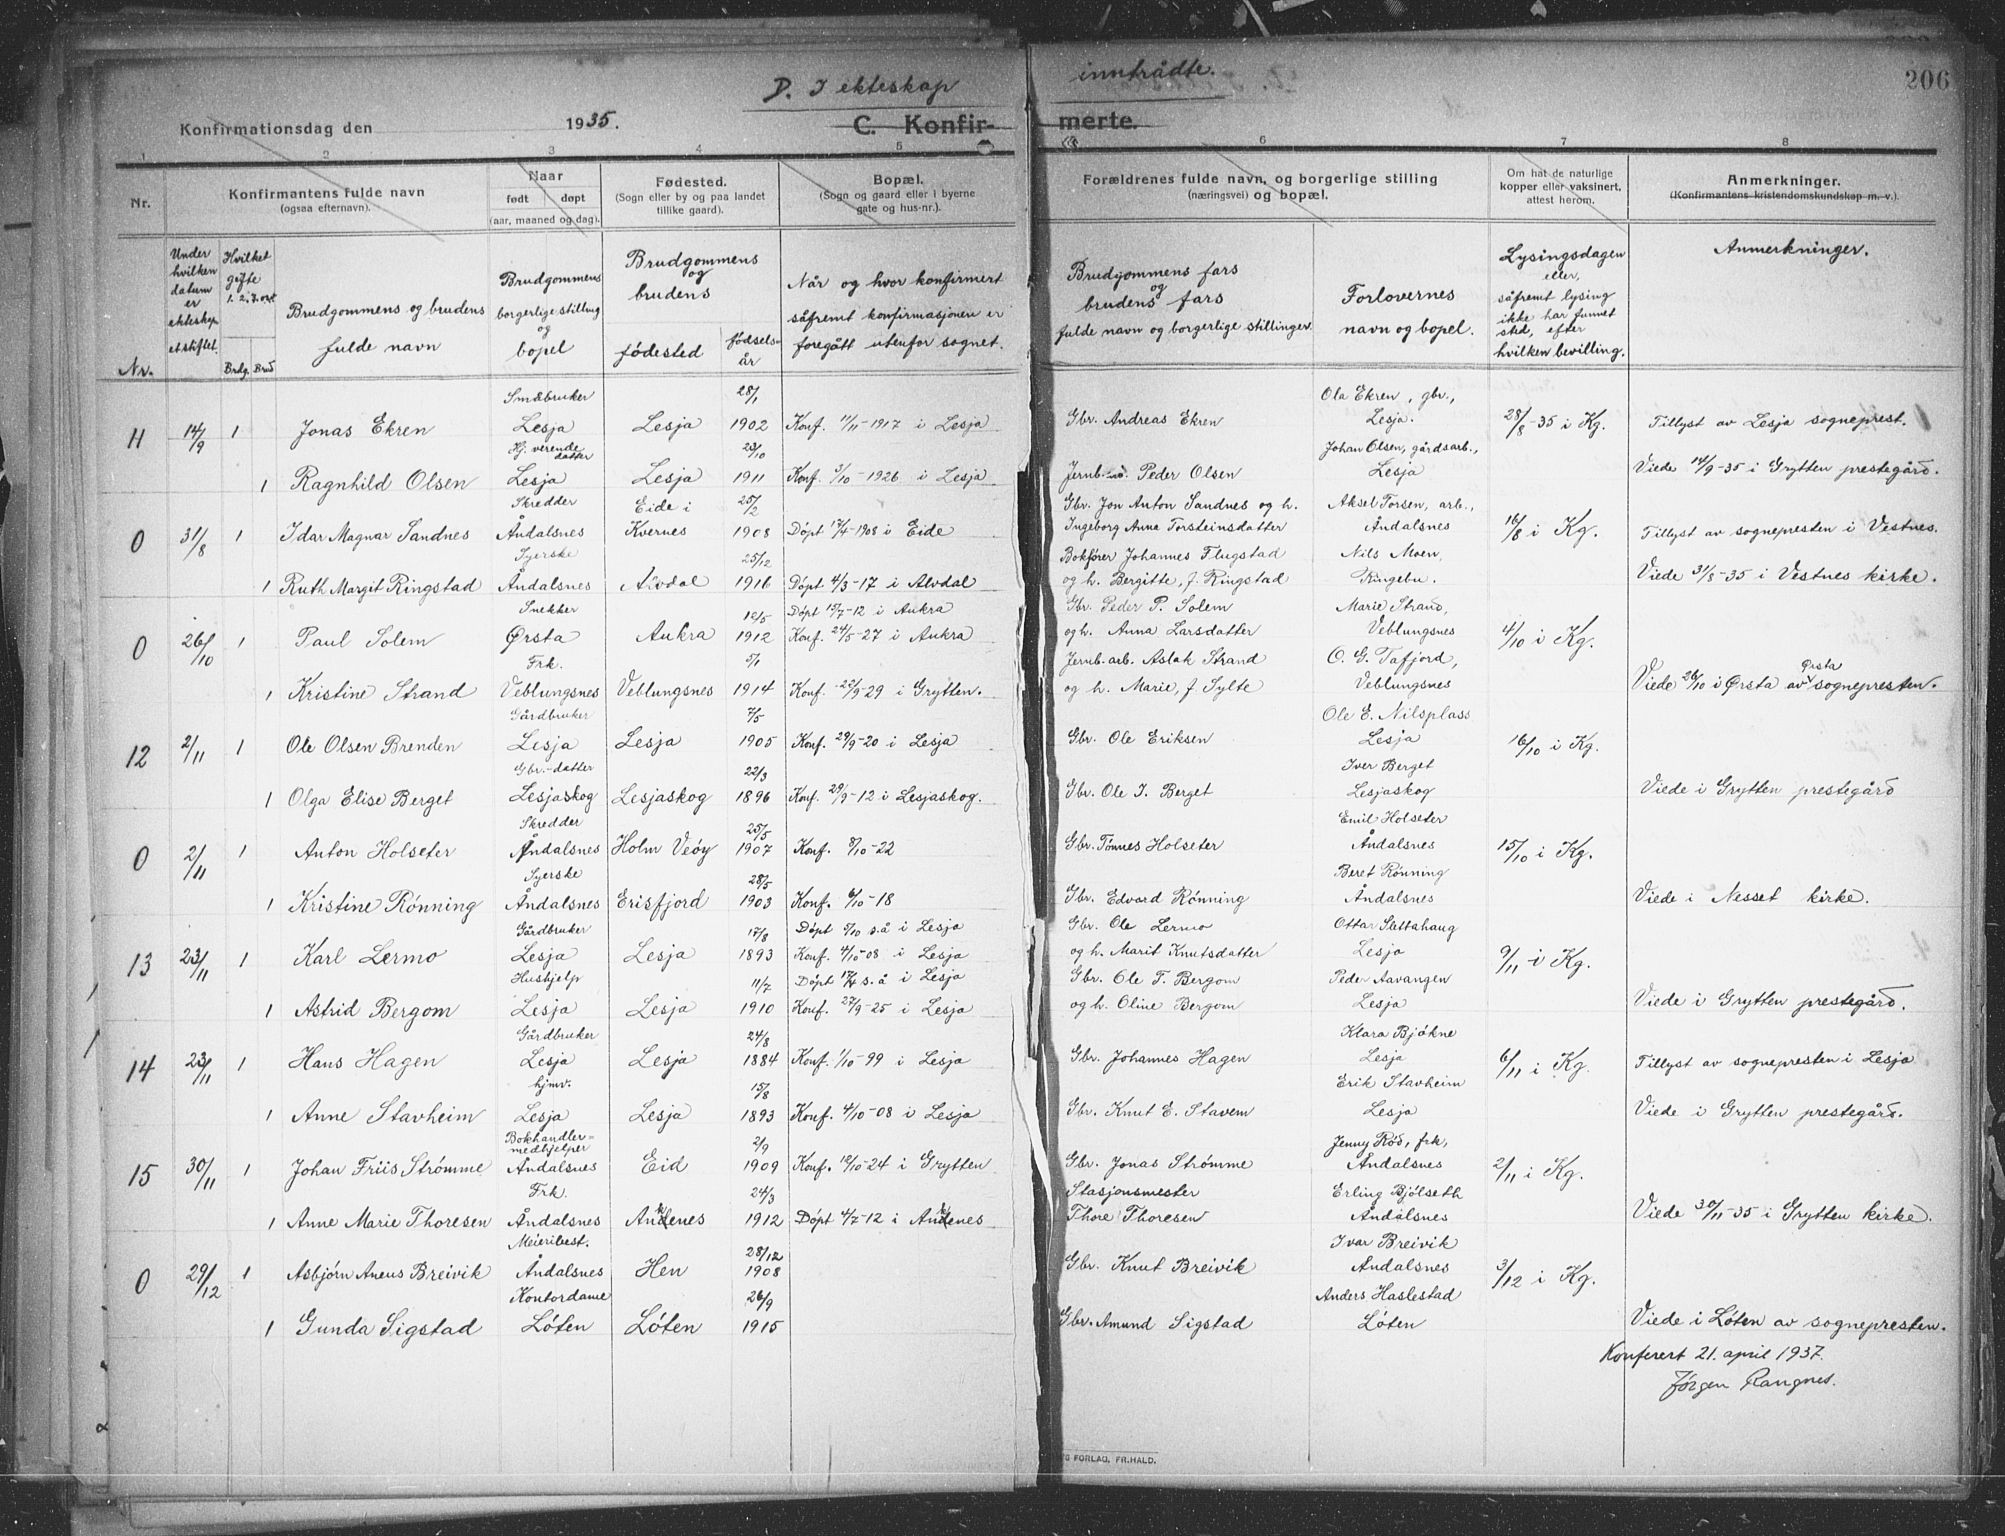 D. I ekteskap inntrådte.
206
Konfirmationsdag den 1935.
C. Konfir- merte.
1 2 3 4 5 6 7 8
Nr.
Konfirmantens fulde navn
(ogsaa efternavn).
Naar
født døpt
(aar, maaned og dag).
Fødested.
(Sogn eller by og paa landet
tillike gaard).
Bopæl.
(Sogn og gaard eller i byerne
gate og hus-nr.).
Forældrenes fulde navn, og borgerlige stilling
(næringsvei) og bopæl.
Om hat de naturlige
kopper eller vaksinert,
attest herom.
Anmerkninger.
(Konfirmantens kristendomskundskap m. v.).
Nr.
Under
hvilken
datum
er
ekteskap
et stiftet.
Hvilket
gifte
1. 2. 3. o.s.v.
Brdg. Brud
Brudgommens og brudens
fulde navn
Brudgommens
borgerlige stilling
og
bopel
Brudgommens
og
brudens
fødested
fødsels-
år
Når og hvor konfirmert
såfremt konfirmasjonen er
foregått utenfor sognet.
Brudgommens fars
og
brudens fars
fulde navn og borgerlige stillinger.
Forlovernes
navn og bopel.
Lysingsdagen
eller,
såfremt lysing
ikke har funnet
sted, efter
hvilken bevilling.
Anmerkninger.
Småbruker 28/1 Ola Ekren, gbr.,
11 14/9 1 Jonas Ekren Lesja Lesja 1902 Konf. 11/11-1917 i Lesja Gbr. Andreas Ekren Lesja. 28/8-35 i Kg. Tillyst av Lesja sogneprest.
Hj. verende
datter 23/10 Johan Olsen, gårdsarb.,
1 Ragnhild Olsen Lesja Lesja 1911 Konf. 3/10-1926 i Lesja Jernb. Peder Olsen Lesja Viede 14/9-35 i Grytten prestegård.
Skredder Eide i 25/2 Gbr. Jon Anton Sandnes og h. Aksel Torsen, arb.,
0 31/8 1 Idar Magnar Sandnes Åndalsnes Kvernes 1908 Døpt 17/4-1908 i Eide Ingeborg Anna Torsteinsdatter Åndalsnes 16/8 i Kg. Tillyst av sognepresten i Vestnes.
Syerske 25/12 Bokfører Johannes Flugstad Nils Moen,
1 Ruth Margit Ringstad Åndalsnes Alvdal 1916 Døpt 4/3-17 i Alvdal og h. Bergitte, f. Ringstad Ringebu. Viede 31/8-35 i Vestnes kirke.
Snekker 12/5 Døpt 15/7-12 i Aukra Gbr. Peder P. Solem Marie Strand,
0 26/10 1 Paul Solem Ørsta Aukra 1912 Konf. 24/5-27 i Aukra og h. Anna Larsdatter Veblungsnes 4/10 i Kg.
Frk. 5/1 Jernb. arb. Aslak Strand O. G. Tafjord,
1 Kristine Strand Veblungsnes Veblungsnes 1914 Konf. 22/9-29 i Grytten. og h. Marie, f. Sylte Veblungsnes Viede 26/10 i Ørsta av Ørsta sognepresten.
Gårdbruker 7/5 Ole E. Nilsplass
12 2/11 1 Ole Olsen Brenden Lesja Lesja 1905 Konf. 29/9-20 i Lesja Gbr. Ole Eriksen Lesja 16/10 i Kg.
Gbr.-datter 22/3 Iver Berget
1 Olga Elise Berget Lesjaskog Lesjaskog 1896 Konf. 29/9-12 i Lesjaskog. Gbr. Ole I. Berget Lesjaskog Viede i Grytten prestegård
Skredder 25/5 Emil Holseter
0 2/11 1 Anton Holseter Åndalsnes Holm Veøy 1907 Konf. 8/10-22 Gbr. Tønnes Holseter Åndalsnes 15/10 i Kg.
Syerske 28/5 Beret Rønning
1 Kristine Rønning Åndalsnes Erisfjord 1903 Konf. 6/10-18 Gbr. Edvard Rønning Åndalsnes Viede i Nesset kirke.
Gårdbruker 17/8 Døpt 8/10 s.å i Lesja Gbr. Ole Lermo Ottar Slettahaug
13 23/11 1 Karl Lermo Lesja Lesja 1893 Konf. 4/10-08 i Lesja og h. Marit Knutsdatter Lesja 9/11-i Kg.
Hushjelp 11/7 Døpt 17/4 s.å i Lesja Gbr. Ole T. Bergom Peder Aavangen
1 Astrid Bergom Lesja Lesja 1910 Konf. 27/9-25 i Lesja og h. Oline Bergom Lesja Viede i Grytten prestegård.
Gårdbruker 24/8 Klara Bjøkne
14 23/11 1 Hans Hagen Lesja Lesja 1884 Konf. 1/10-99 i Lesja Gbr. Johannes Hagen Lesja 6/11 i Kg. Tillyst av sognepresten i Lesja
hjmv. 15/8 Erik Stavheim
1 Anne Stavheim Lesja Lesja 1893 Konf. 4/10-08 i Lesja Gbr. Knut E. Stavem Lesja Viede i Grytten prestegård.
Bokhandler=
medhjelper 2/9 Jenny Rød, frk,
15 30/11 1 Johan Friis Strømme Åndalsnes Eid 1909 Konf. 12/10-24 i Grytten Gbr. Jonas Strømme Åndalsnes 2/11 i Kg.
Frk. 24/3 Stasjonsmester Erling Bjølseth
1 Anne Marie Thoresen Åndalsnes Andenes 1912 Døpt 4/7-12 i Andenes Thore Thoresen Åndalsnes Viede 30/11-35 i Grytten kirke.
Meieribest. 28/12 Ivar Breivik
0 29/12 1 Asbjørn Aneus Breivik Åndalsnes Hen 1908 Gbr. Knut Breivik Åndalsnes 3/12 i Kg.
Kontordame 26/9 Anders Haslestad
1 Gunda Sigstad Løten Løten 1915 Gbr. Amund Sigstad Løten Viede i Løten av sognepresten.
Konferert 21. april 1937.
Jørgen Rangnes.
FORLAG, FR.HALD.